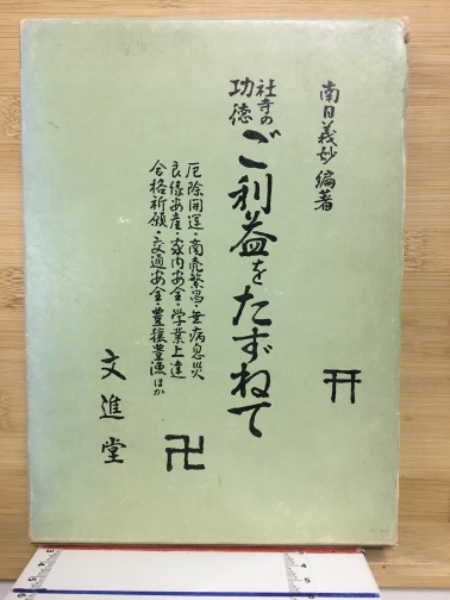 南日義妙 編著
社寺の
功徳
ご利益をたずねて
厄除開運・商売繁昌・無病息災
良縁安産・家内安全・学業上達
合格祈願・交通安全・豊穣豊漁ほか
文進堂
卍